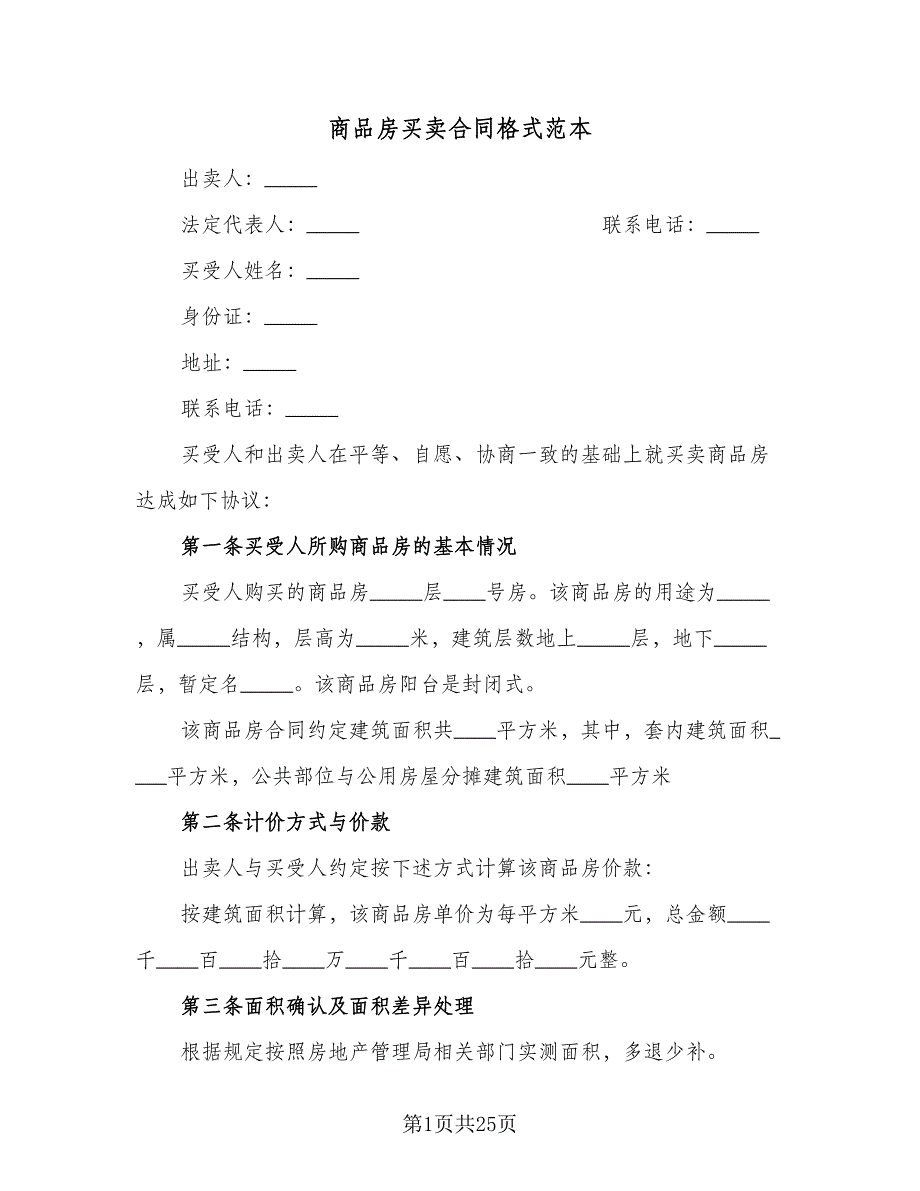 商品房买卖合同格式范本
出卖人：_____
法定代表人：_____ 联系电话：_____
买受人姓名：_____
身份证：_____
地址：_____
联系电话：_____
买受人和出卖人在平等、自愿、协商一致的基础上就买卖商品房
达成如下协议：
第一条买受人所购商品房的基本情况
买受人购买的商品房_____层____号房。该商品房的用途为_____
，属_____结构，层高为_____米，建筑层数地上_____层，地下_____
层，暂定名_____。该商品房阳台是封闭式。
该商品房合同约定建筑面积共____平方米，其中，套内建筑面积_
___平方米，公共部位与公用房屋分摊建筑面积____平方米
第二条计价方式与价款
出卖人与买受人约定按下述方式计算该商品房价款：
按建筑面积计算，该商品房单价为每平方米____元，总金额____
千____百____拾____万____千____百____拾____元整。
第三条面积确认及面积差异处理
根据规定按照房地产管理局相关部门实测面积，多退少补。
第1页共25页